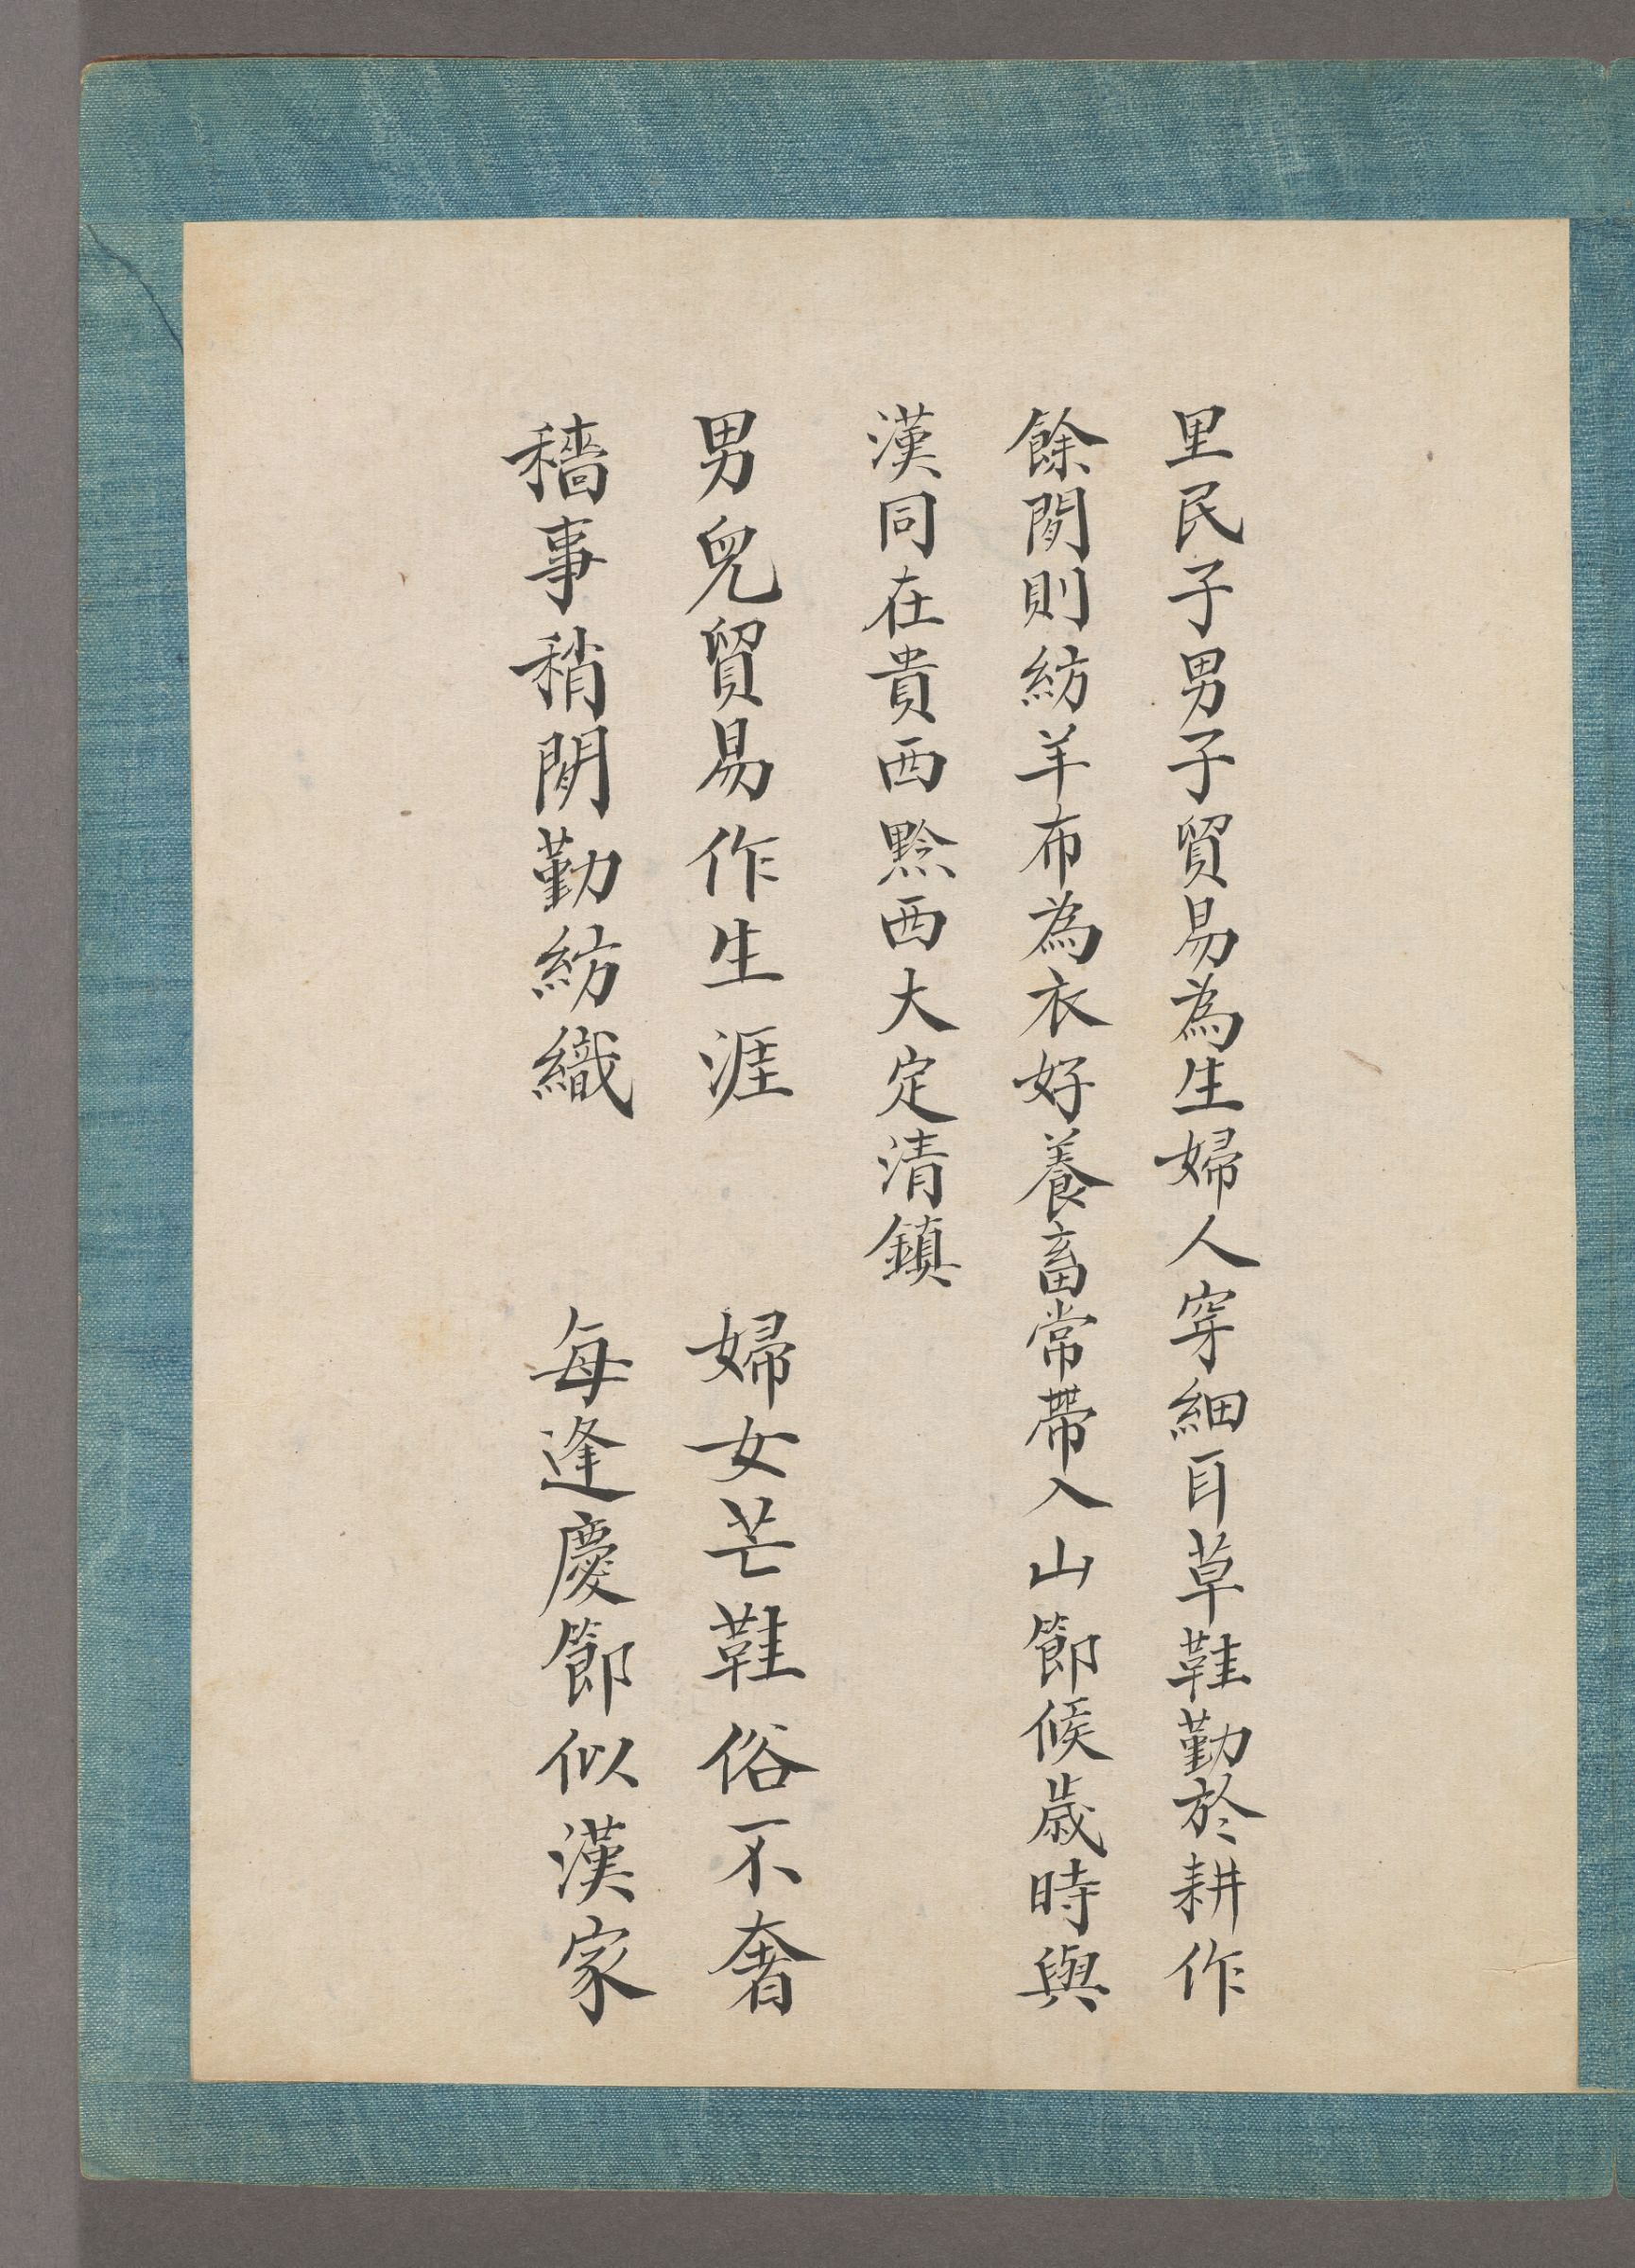 里民子男子貿易為生婦人穿細耳草鞋勤於耕作
餘閒則紡羊布為衣好養畜常帶入山節候歲時與
漢同在貴西黔西大定清鎮
男兒貿易作生涯 婦女芒鞋俗不奢
穡事稍閒勤紡織 每逢慶節似漢家